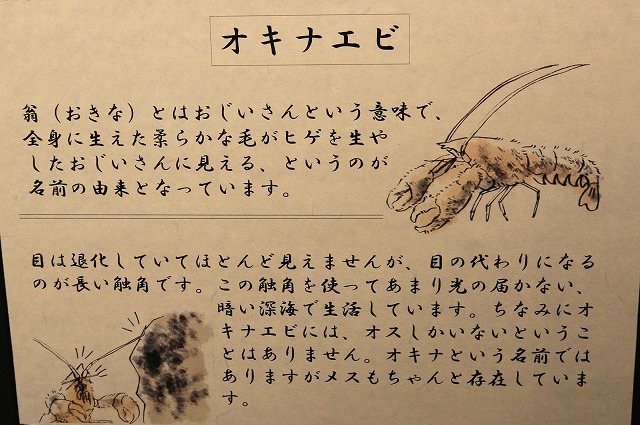 オキナエビ
翁（おきな）とはおじいさんという意味で、
全身に生えた柔らかな毛がヒゲを生や
したおじいさんに見える、というのが
名前の由来となっています。
目は退化していてほとんど見えませんが、目の代わりになる
のが長い触角です。この触角を使ってあまり光の届かない、
暗い深海で生活しています。ちなみにオ
キナエビには、オスしかいないというこ
とはありません。オキナという名前では
ありますがメスもちゃんと存在していま
す。